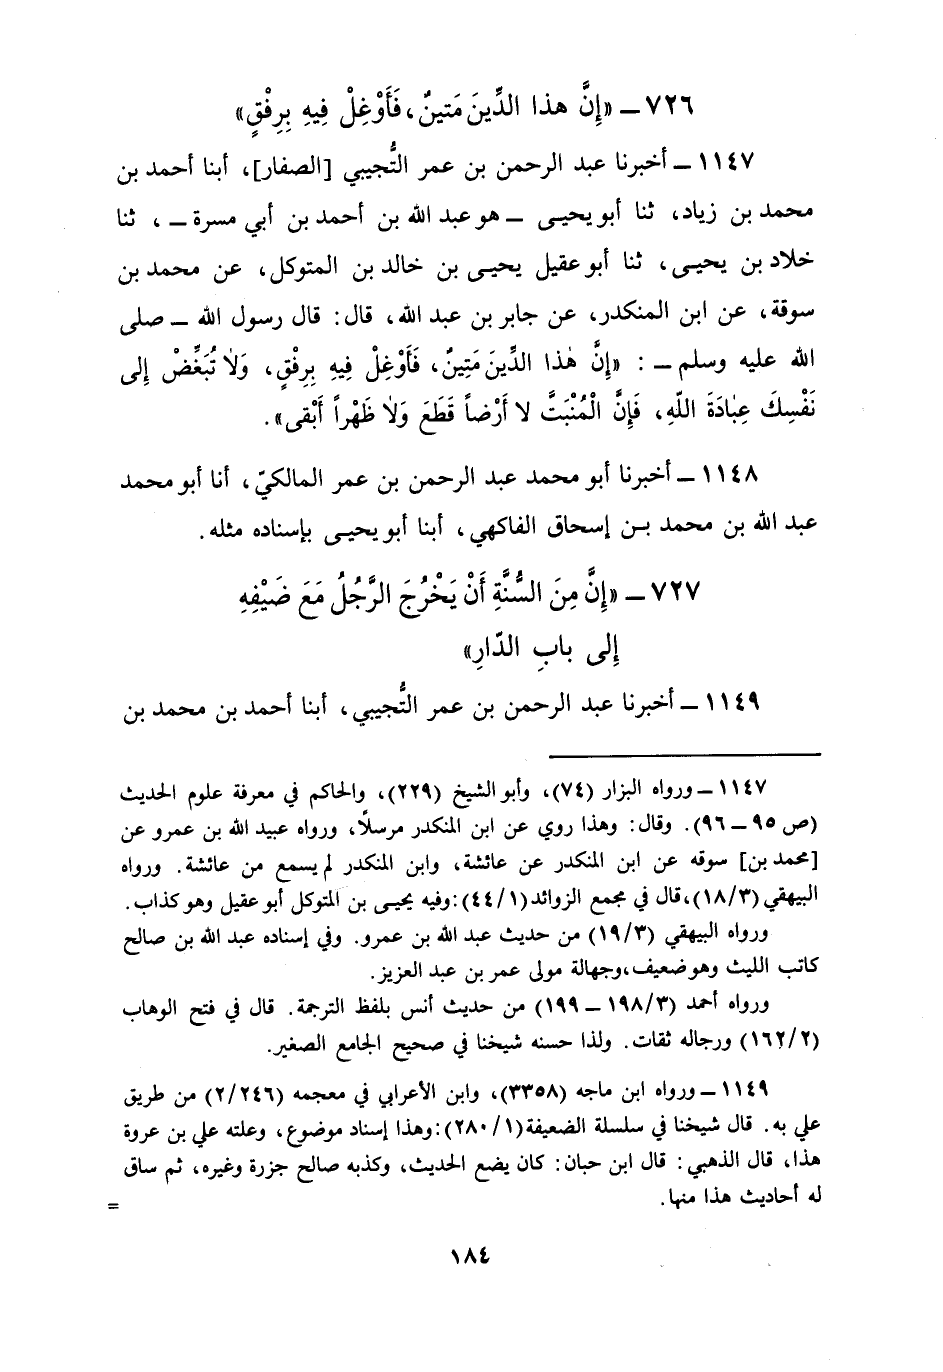 ٧٢٦ ــ «إِنَّ هذا الدِّينَ مَتينٌ، فَأَوْغِلْ فِيهِ بِرِفْقٍ»
١١٤٧ ــ أخبرنا عبد الرحمن بن عمر التُّجيبي [الصفار]، أبنا أحمد بن
محمد بن زياد، ثنا أبو يحيى ــ هو عبد الله بن أحمد بن أبي مسرة ــ ، ثنا
خلاد بن يحيى، ثنا أبو عقيل يحيى بن خالد بن المتوكل، عن محمد بن
سوقة، عن ابن المنكدر، عن جابر بن عبد الله، قال: قال رسول الله ــ صلى
الله عليه وسلم ــ : «إِنَّ هٰذا الدِّينَ مَتِينٌ، فَأَوْغِلْ فِيهِ بِرِفْقٍ، وَلاَ تُبَغِّضْ إِلى
نَفْسِكَ عِبَادَةَ اللّهِ، فَإِنَّ الْمُنْبَتَّ لا أَرْضاً قَطَعَ وَلاَ ظَهْراً أَبْقى».
١١٤٨ ــ أخبرنا أبو محمد عبد الرحمن بن عمر المالكيّ، أنا أبو محمد
عبد الله بن محمد بن إسحاق الفاكهي، أبنا أبو يحيى بإسناده مثله.
٧٢٧ ــ «إِنَّ مِنَ السُّنَّةِ أَنْ يَخْرُجَ الرَّجُلُ مَعَ ضَيْفِهِ
إِلى بابِ الدّارِ»
١١٤٩ ــ أخبرنا عبد الرحمن بن عمر التُّجيبي، أبنا أحمد بن محمد بن
١١٤٧ ــ ورواه البزار (٧٤)، وأبو الشيخ (٢٢٩)، والحاكم في معرفة علوم الحديث
(ص ٩٥ ــ ٩٦). وقال: وهذا روي عن ابن المنكدر مرسلاً، ورواه عبيد الله بن عمرو عن
[محمد بن] سوقه عن ابن المنكدر عن عائشة، وابن المنكدر لم يسمع من عائشة. ورواه
البيهقي (١٨/٣)، قال في مجمع الزوائد (٤٤/١): وفيه يحيى بن المتوكل أبو عقيل وهو كذاب.
ورواه البيهقي (١٩/٣) من حديث عبد الله بن عمرو. وفي إسناده عبد الله بن صالح
كاتب الليث وهو ضعيف، وجهالة مولى عمر بن عبد العزيز.
ورواه أحمد (١٩٨/٣ ــ ١٩٩) من حديث أنس بلفظ الترجمة. قال في فتح الوهاب
(١٦٢/٢) ورجاله ثقات. ولذا حسنه شيخنا في صحيح الجامع الصغير.
١١٤٩ ــ ورواه ابن ماجه (٣٣٥٨)، وابن الأعرابي في معجمه (٢/٢٤٦) من طريق
علي به. قال شيخنا في سلسلة الضعيفة (٢٨٠/١): وهذا إسناد موضوع، وعلته علي بن عروة
هذا، قال الذهبي: قال ابن حبان: كان يضع الحديث، وكذبه صالح جزرة وغيره، ثم ساق
له أحاديث هذا منها.
=
١٨٤